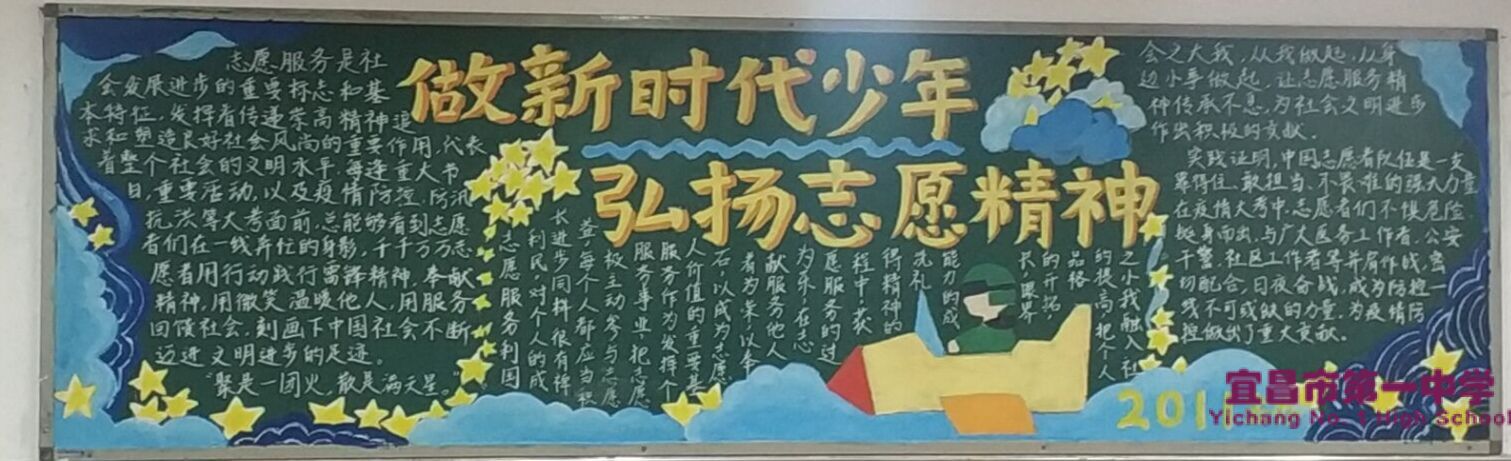 做新时代少年
弘扬志愿精神
志愿服务是社
会发展进步的重要标志和基
本特征，发挥着传递崇高精神追
求和塑造良好社会风尚的重要作用，代表
着整个社会的文明水平。每逢重大节
日，重要活动，以及疫情防控，防汛
抗洪等大考面前，总能够看到志愿
者们在一线奔忙的身影，千千万万志
愿者用行动践行雷锋精神，奉献
精神，用微笑温暖他人，用服务
回馈社会，刻画下中国社会不断
迈进文明进步的足迹。
“聚是一团火，散是满天星。”
志愿服务利国
利民，对个人的成
长进步同样很有裨
益，每个人都应当积
极主动参与志愿
服务事业，把志愿
服务作为发挥个
人价值的重要基
石，以成为志愿
者为荣，以奉
献服务他人
为乐，在志
愿服务的过
程中，获
得精神的
洗礼，
能力的成
长，眼界
的开拓，
品格
的提高，把个人
之小我融入社
会之大我，从我做起，从身
边小事做起，让志愿服务精
神传承不息，为社会文明进步
作出积极的贡献。
实践证明，中国志愿者队伍是一支
靠得住、敢担当、不畏难的强大力量
在疫情大考中，志愿者们不惧危险，
挺身而出，与广大医务工作者、公安
干警、社区工作者等并肩作战，密
切配合，日夜奋战，成为防控一
线不可或缺的力量，为疫情防
控做出了重大贡献。
宜昌市第一中学
Yichang No.1 High School